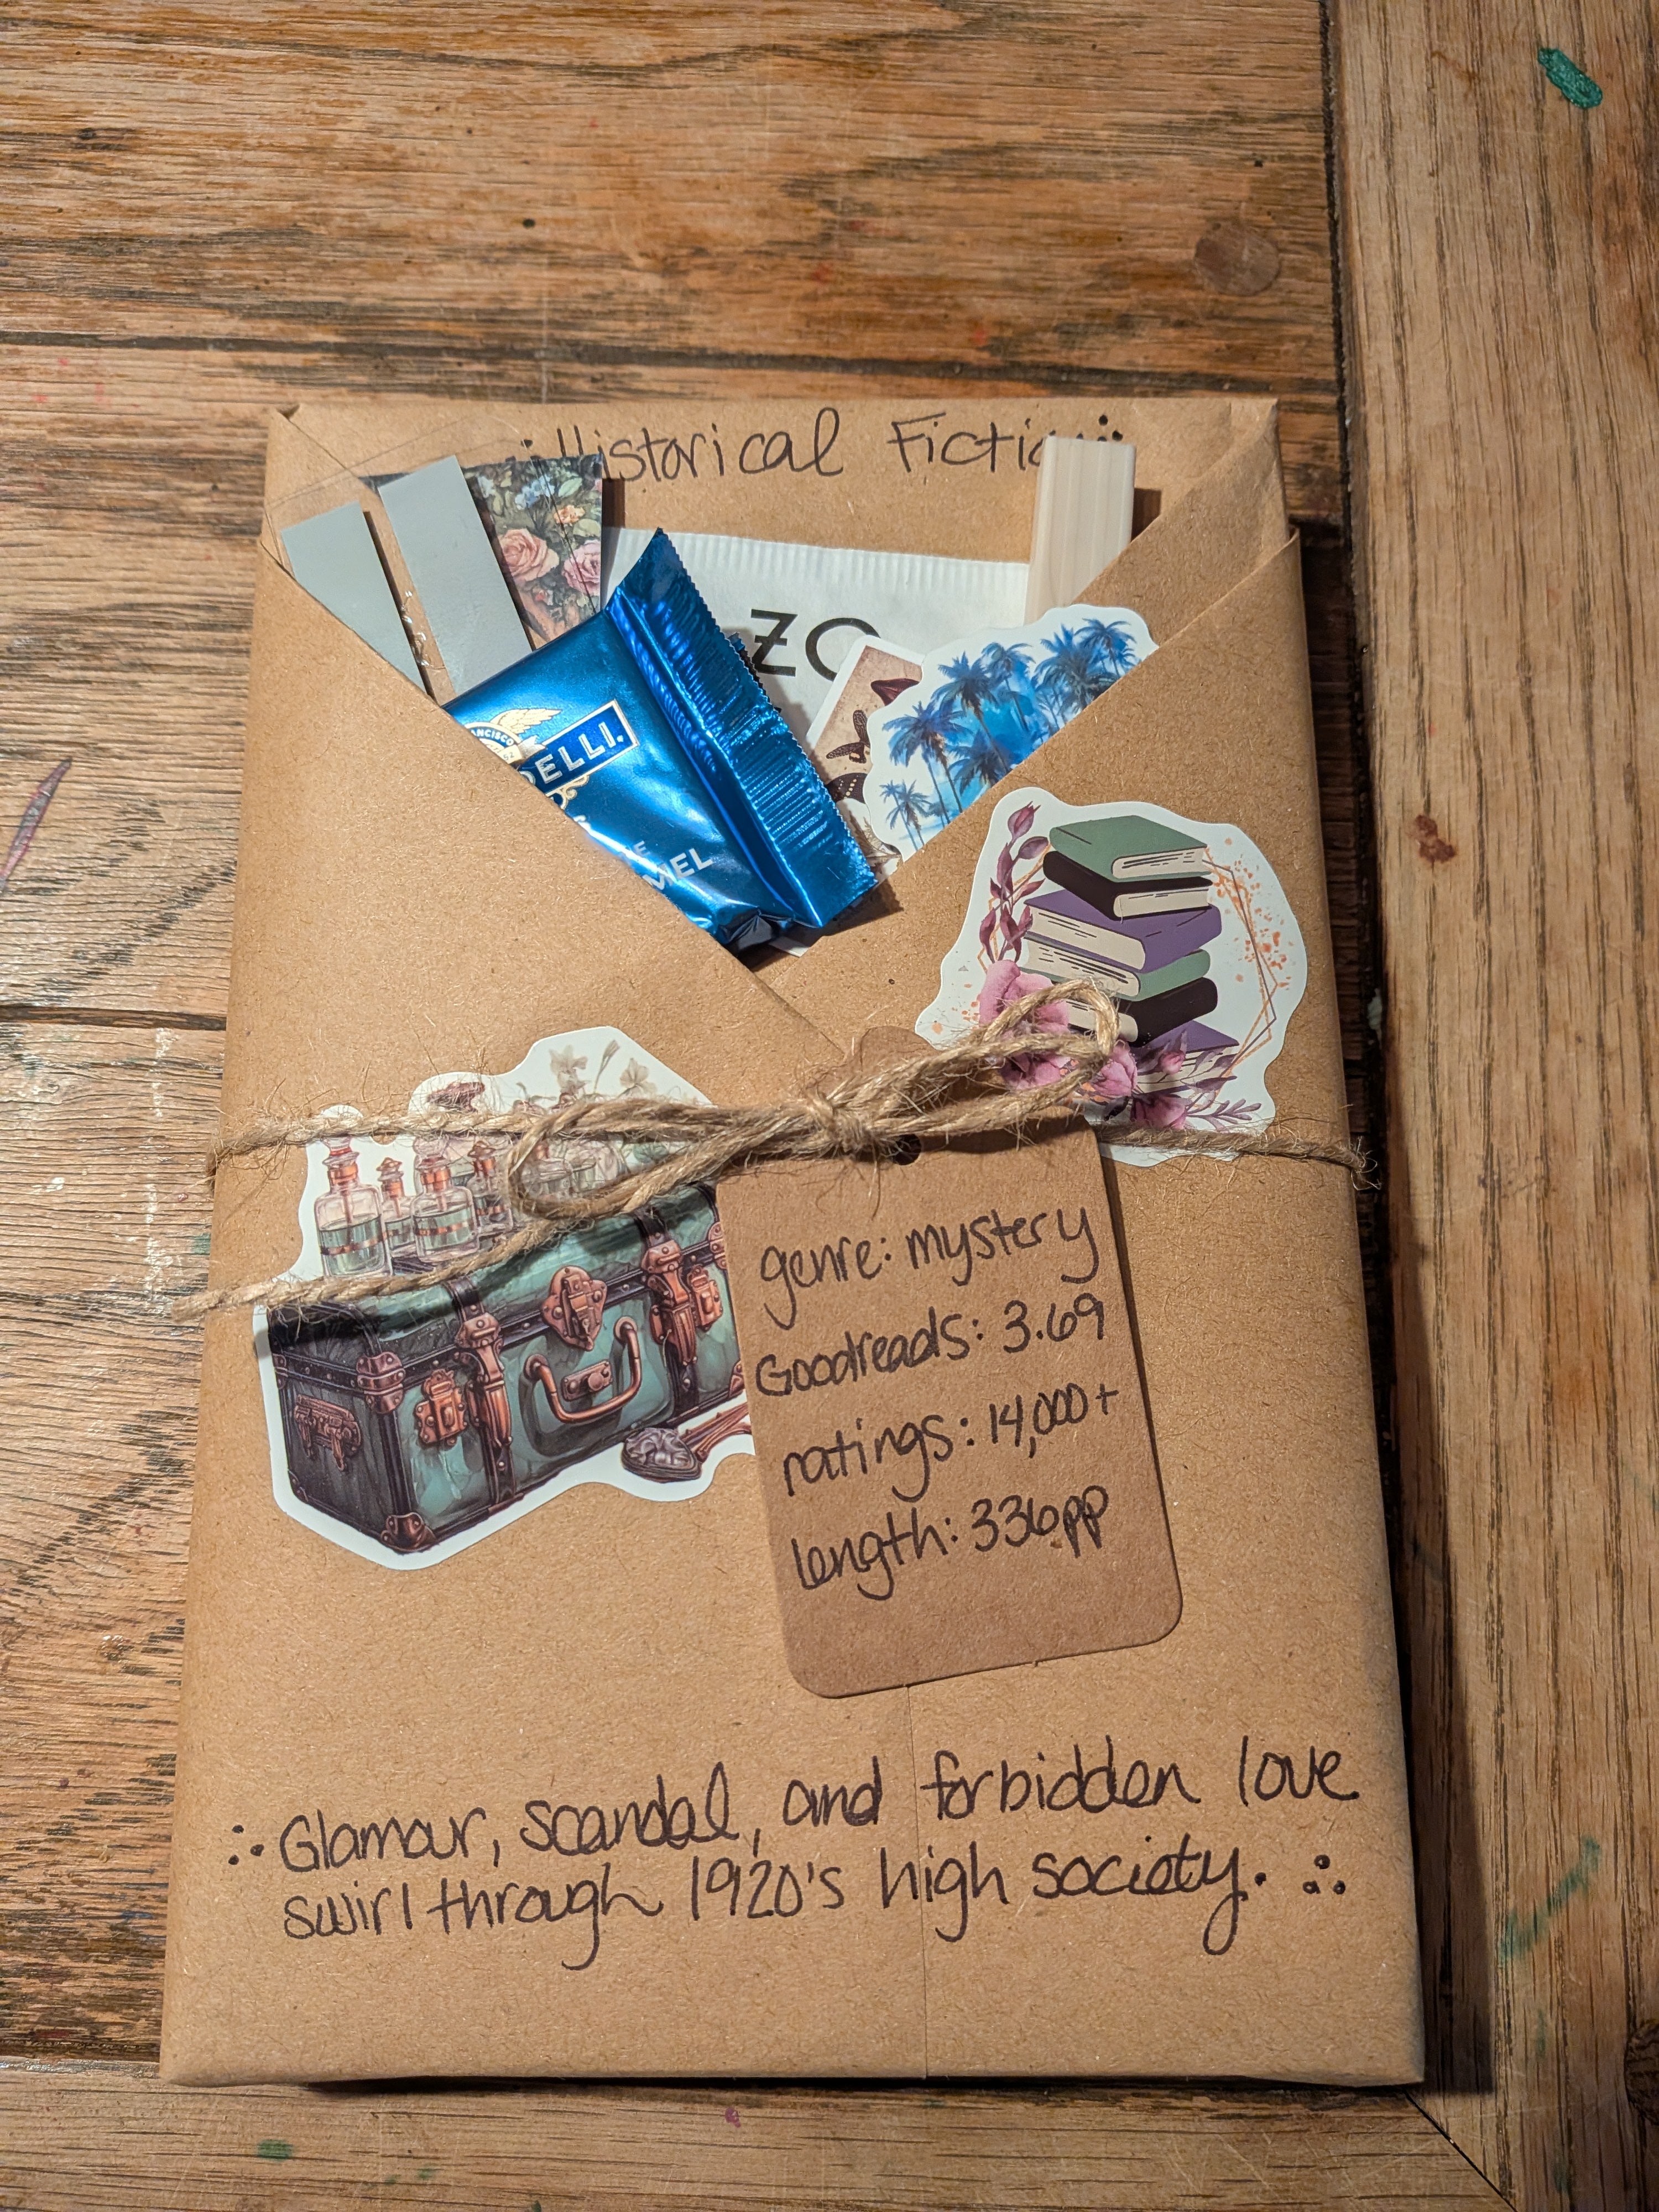 Historical Fictio
ZO
DELLI
MEL
genre: mystery
Goodreads: 3.69
ratings: 14,000+
length: 336pp
Glamour, scandal, and forbidden love
swirl through 1920's high society.